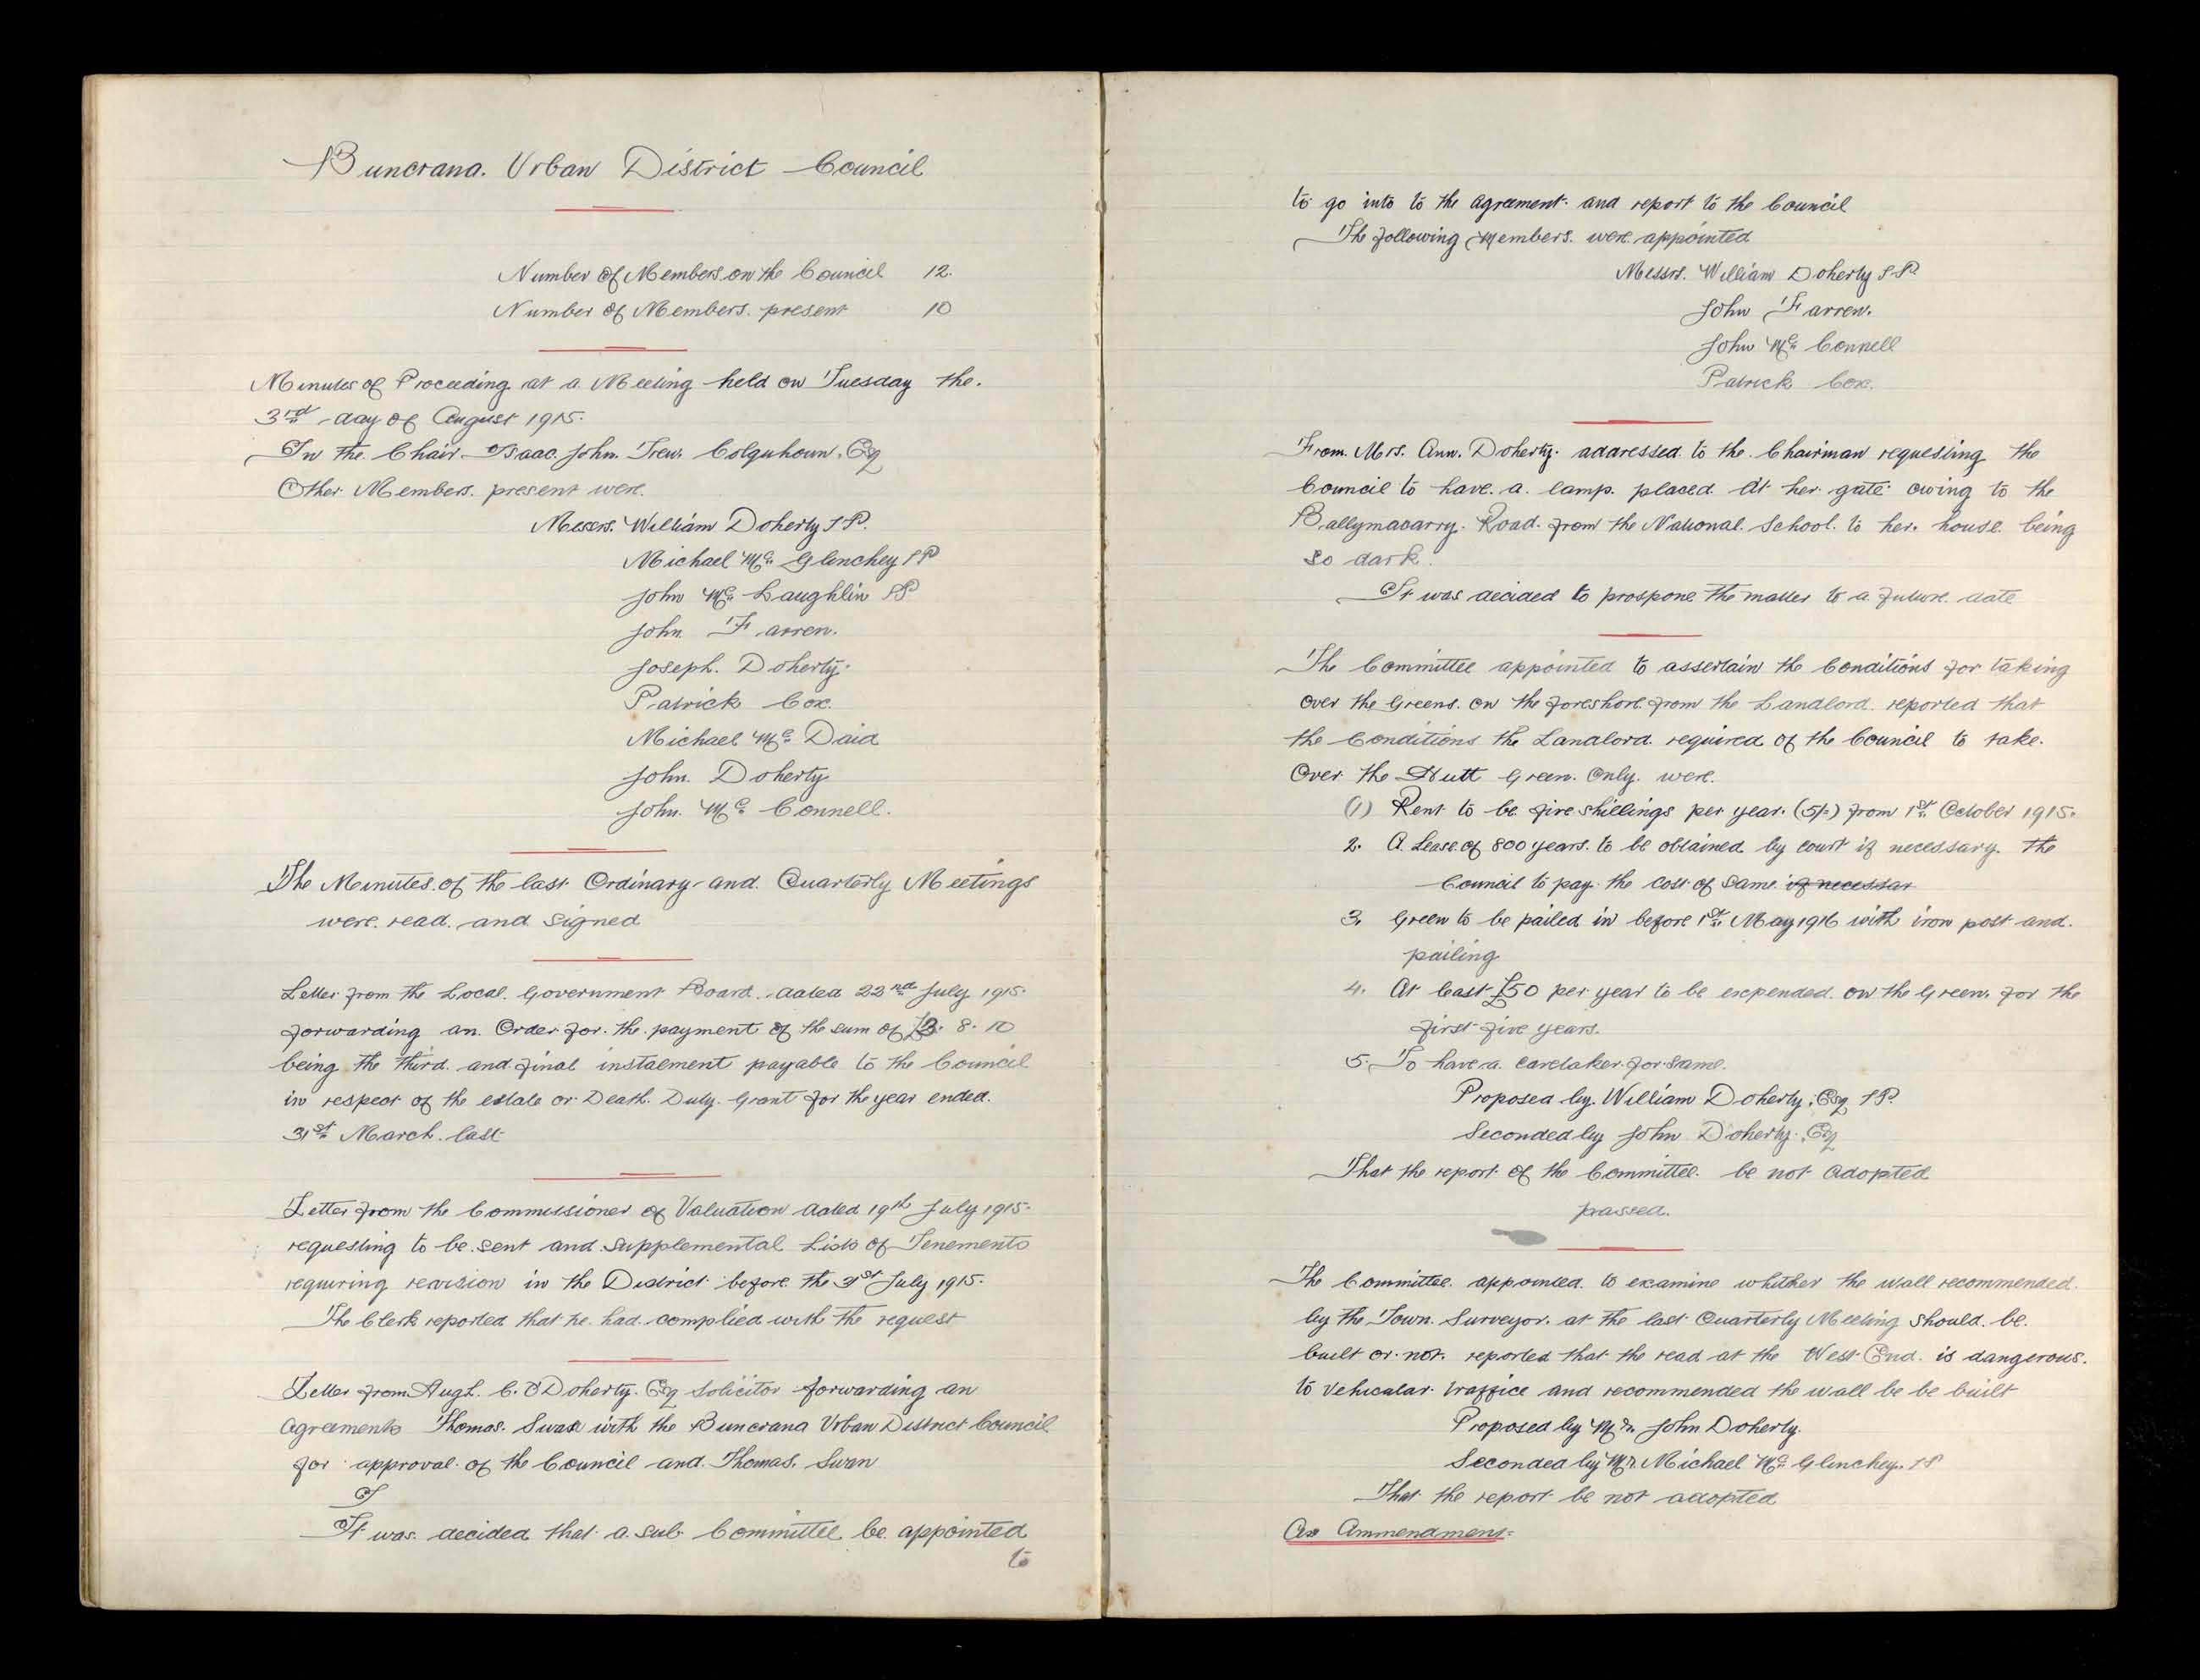 Buncrana. Urban District Council
Number of Members on the Council 12.
Number of Members. present 10
Minutes of Proceeding at a Meeting held on Tuesday the.
3rd day of August 1915.
In the Chair Isaac. John. Trew. Colquhoun. Esq
Other Members. present were.
Messrs. William Doherty J P.
Michael Mc Glinchey J P
John Mc Laughlin J P
John Farren.
Joseph. Doherty.
Patrick Cox.
Michael Mc Daid
John. Doherty
John. Mc Connell.
The Minutes of the last Ordinary and Quarterly Meetings
were read and signed
Letter from the Local Government Board. dated 22nd July 1915.
forwarding an Order for the payment of the sum of £3. 8. 10
being the third and final instalment payable to the Council
in respect of the estate or Death. Duty. Grant for the year ended.
31st March. last
Letter from the Commissioner of Valuation dated 19th July 1915.
requesting to be sent and supplemental Lists of Tenements
requiring revision in the District before the 31st July 1915.
The Clerk reported that he had complied with the request
Letter from Hugh. C. O'Doherty. Esq Solicitor forwarding an
agreements Thomas. Swan with the Buncrana Urban District Council
for approval of the Council and Thomas. Swan
I
It was decided that a sub Committee be appointed
to
to go into to the agreement and report to the Council
The following Members. were appointed
Messrs. William Doherty J P.
John Farren.
John Mc Connell
Patrick Cox.
From. Mrs. Ann. Doherty. addressed to the Chairman requesting the
Council to have a lamp placed At her gate owing to the
Ballymacarry. Road. from the National School to her house being
so dark.
It was decided to prospone the matter to a future date
The Committee appointed to assertain the Conditions for taking
over the Greens on the foreshore from the Landlord reported that
the Conditions the Landlord required of the Council to take.
Over the Hutt Green. Only. were.
(1) Rent to be five shillings per year. (5/-) from 1st October 1915.
2. A Lease of 800 years. to be obtained by court if necessary. the
Council to pay the cost of same if necessar
3. Green to be pailed in before 1st May 1916 with iron post and.
pailing
4. At least £50 per year to be expended on the Green for the
first five years.
5. To have a caretaker for same.
Proposed by William Doherty, Esq J P.
Seconded by John Doherty. Esq
That the report of the Committee be not adopted
passed.
The Committee appointed to examine whether the wall recommended
by the Town. Surveyor. at the last Quarterly Meeting should be.
built or not. reported that the road at the West End. is dangerous.
to vehicular traffice and recommended the wall be be built
Proposed by Mr. John Doherty.
Seconded by Mr. Michael Mc Glinchey. J P
That the report be not adopted
As Ammendment